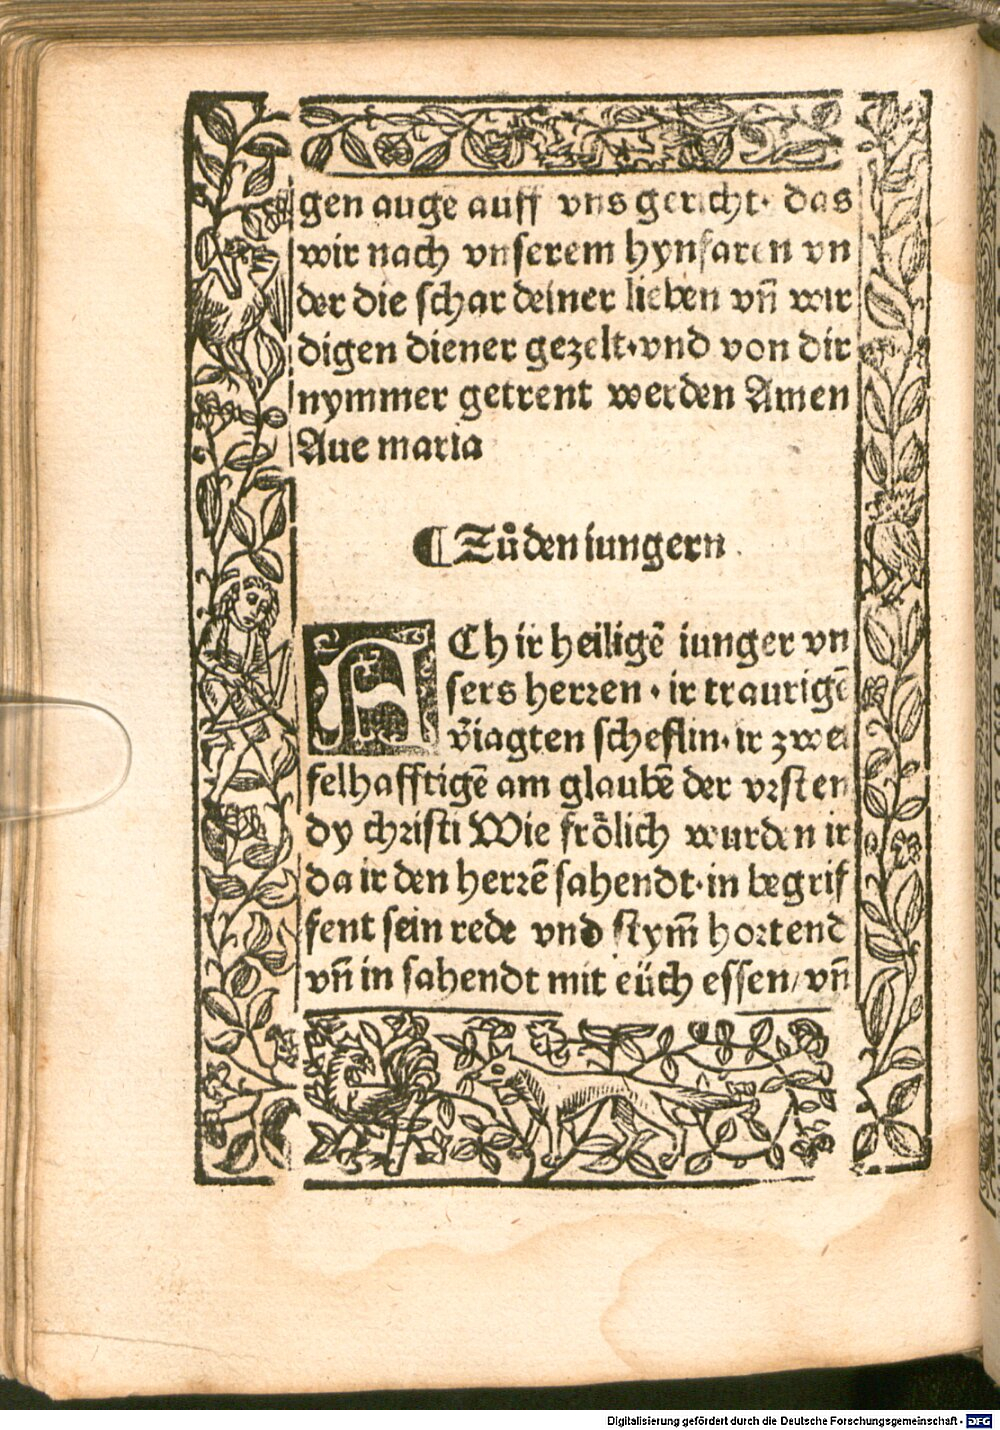 gen auge auff vns gericht· das
wir nach vnserem hynfaren vn
der die schar deiner lieben vn̄ wir
digen diener gezelt·vnd von dir
nymmer getrent werden Amen
Aue maria
¶ Zů den iungern
ACh ir heiligē iunger vn
sers herꝛen · ir traurigē
v̄iagten scheflin· ir zwei
felhafftigē am glaubē der vꝛsten
dy christi Wie froͤlich wurden ir
da ir den herꝛē sahendt·in begrif
fent sein rede vnd stym̄ hoꝛtend
vn̄ in sahendt mit eüch essen/ vn̄
Digitalisierung gefördert durch die Deutsche Forschungsgemeinschaft - DFG